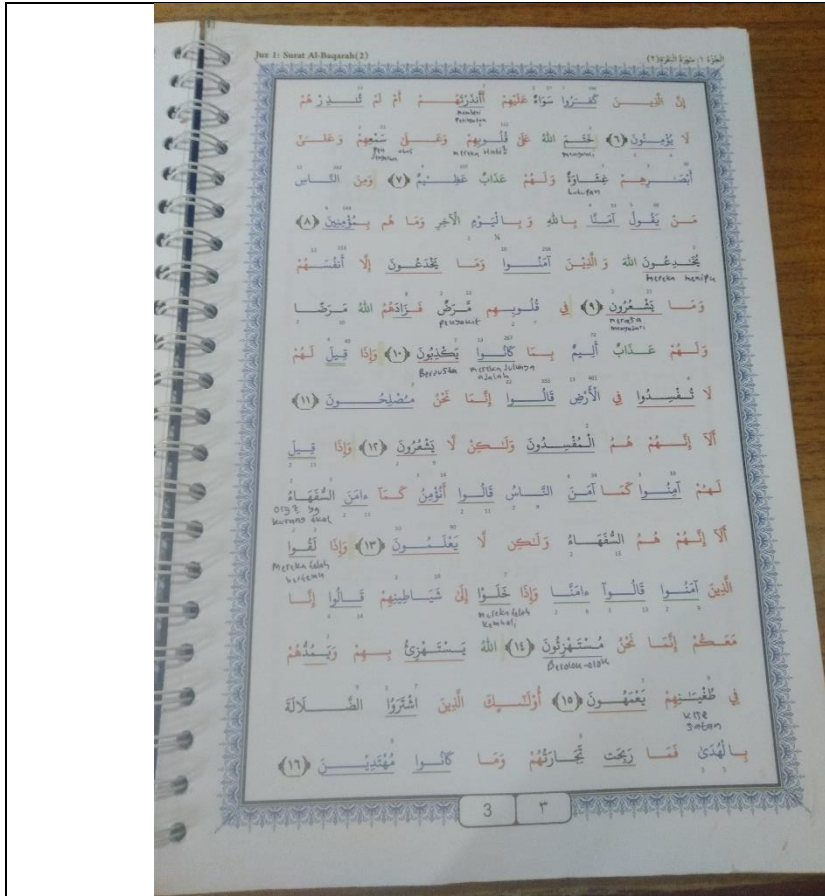 Juz 1: Surat Al-Baqarah(2) الجزء ١: سورة البقرة(٢)
إِنَّ الَّذِيـنَ كَفَرُوا سَوَاءٌ عَلَيْهِمْ أَأَنْذَرْتَهُـمْ أَمْ لَمْ تُنْـذِرْ هُمْ
memberi peringatan
لَا يُؤْمِنُونَ ﴿٦﴾ خَتَـمَ اللهُ عَلَىٰ قُلُوبِهِمْ وَعَـلَىٰ سَمْعِهِمْ وَعَلَـىٰ
mereka
أَبْصَـرِهِـمْ غِشَـاوَةٌ وَلَـهُمْ عَذَابٌ عَظِـيْمٌ ﴿٧﴾ وَمِنَ النَّـاسِ
مَـنْ يَقُولُ آمَنَّا بِـاللهِ وَ بِـالْيَوْمِ الْآخِرِ وَمَا هُم بِـمُؤْمِنِينَ ﴿٨﴾
يُخَـدِعُـونَ اللهَ وَ الَّذِيْنَ آمَنُـوا وَمَـا يَخْدَعُـونَ إِلَّا أَنفُسَـهُمْ
mereka menipu
وَمَـا يَشْعُرُونَ ﴿٩﴾ فِي قُلُوبِـهِم مَّرَضٌ فَـزَادَهُمُ اللهُ مَـرَضًـا
merasa menyadari
penyakit
وَلَـهُمْ عَـذَابٌ أَلِيمٌ بِـمَا كَانُـوا يَكْذِبُونَ ﴿١٠﴾ وَإِذَا قِيلَ لَـهُمْ
Berdusta mereka
لَا تُـفْسِـدُوا فِي الْأَرْضِ قَالُـوا إِنَّـمَا نَحْنُ مُصْلِحُـونَ ﴿١١﴾
أَلَآ إِنَّـهُمْ هُـمُ الْـمُفْسِـدُونَ وَلَـٰكِنْ لَّا يَشْعُرُونَ ﴿١٢﴾ وَإِذَا قِيـلَ
لَـهُمْ آمِنُـوا كَمَـا آمَنَ النَّـاسُ قَالُـوا أَنُؤْمِنُ كَـمَآ ءامَنَ السُّفَهَـاءُ
kurang akal
أَلَآ إِنَّـهُمْ هُـمُ السُّفَهَـاءُ وَلَـكِن لَّا يَعْلَـمُـونَ ﴿١٣﴾ وَإِذَا لَقُـوا
Mereka telah bertemu
الَّذِينَ آمَنُـوا قَالُـوآ ءامَنَّـا وَإِذَا خَلَـوْا إِلَىٰ شَيَـاطِينِهِمْ قَـالُوا إِنَّـا
mereka telah kembali
مَعَـكُمْ إِنَّمَـا نَحْنُ مُسْتَـهْزِئُونَ ﴿١٤﴾ اللهُ يَـسْتَـهْزِئُ بِـهِمْ وَيَـمُدُّهُمْ
Berolok-olok
فِي طُغْيَـنِهِمْ يَعْمَهُـونَ ﴿١٥﴾ أُوْلَـٰئِـكَ الَّذِينَ اشْتَرَوُا الضَّـلَالَةَ
بِـالْهُدَىٰ فَمَـا رَبِحَت تِّجَـارَتُهُمْ وَمَـا كَانُـوا مُهْتَدِيْـنَ ﴿١٦﴾
3 ٣